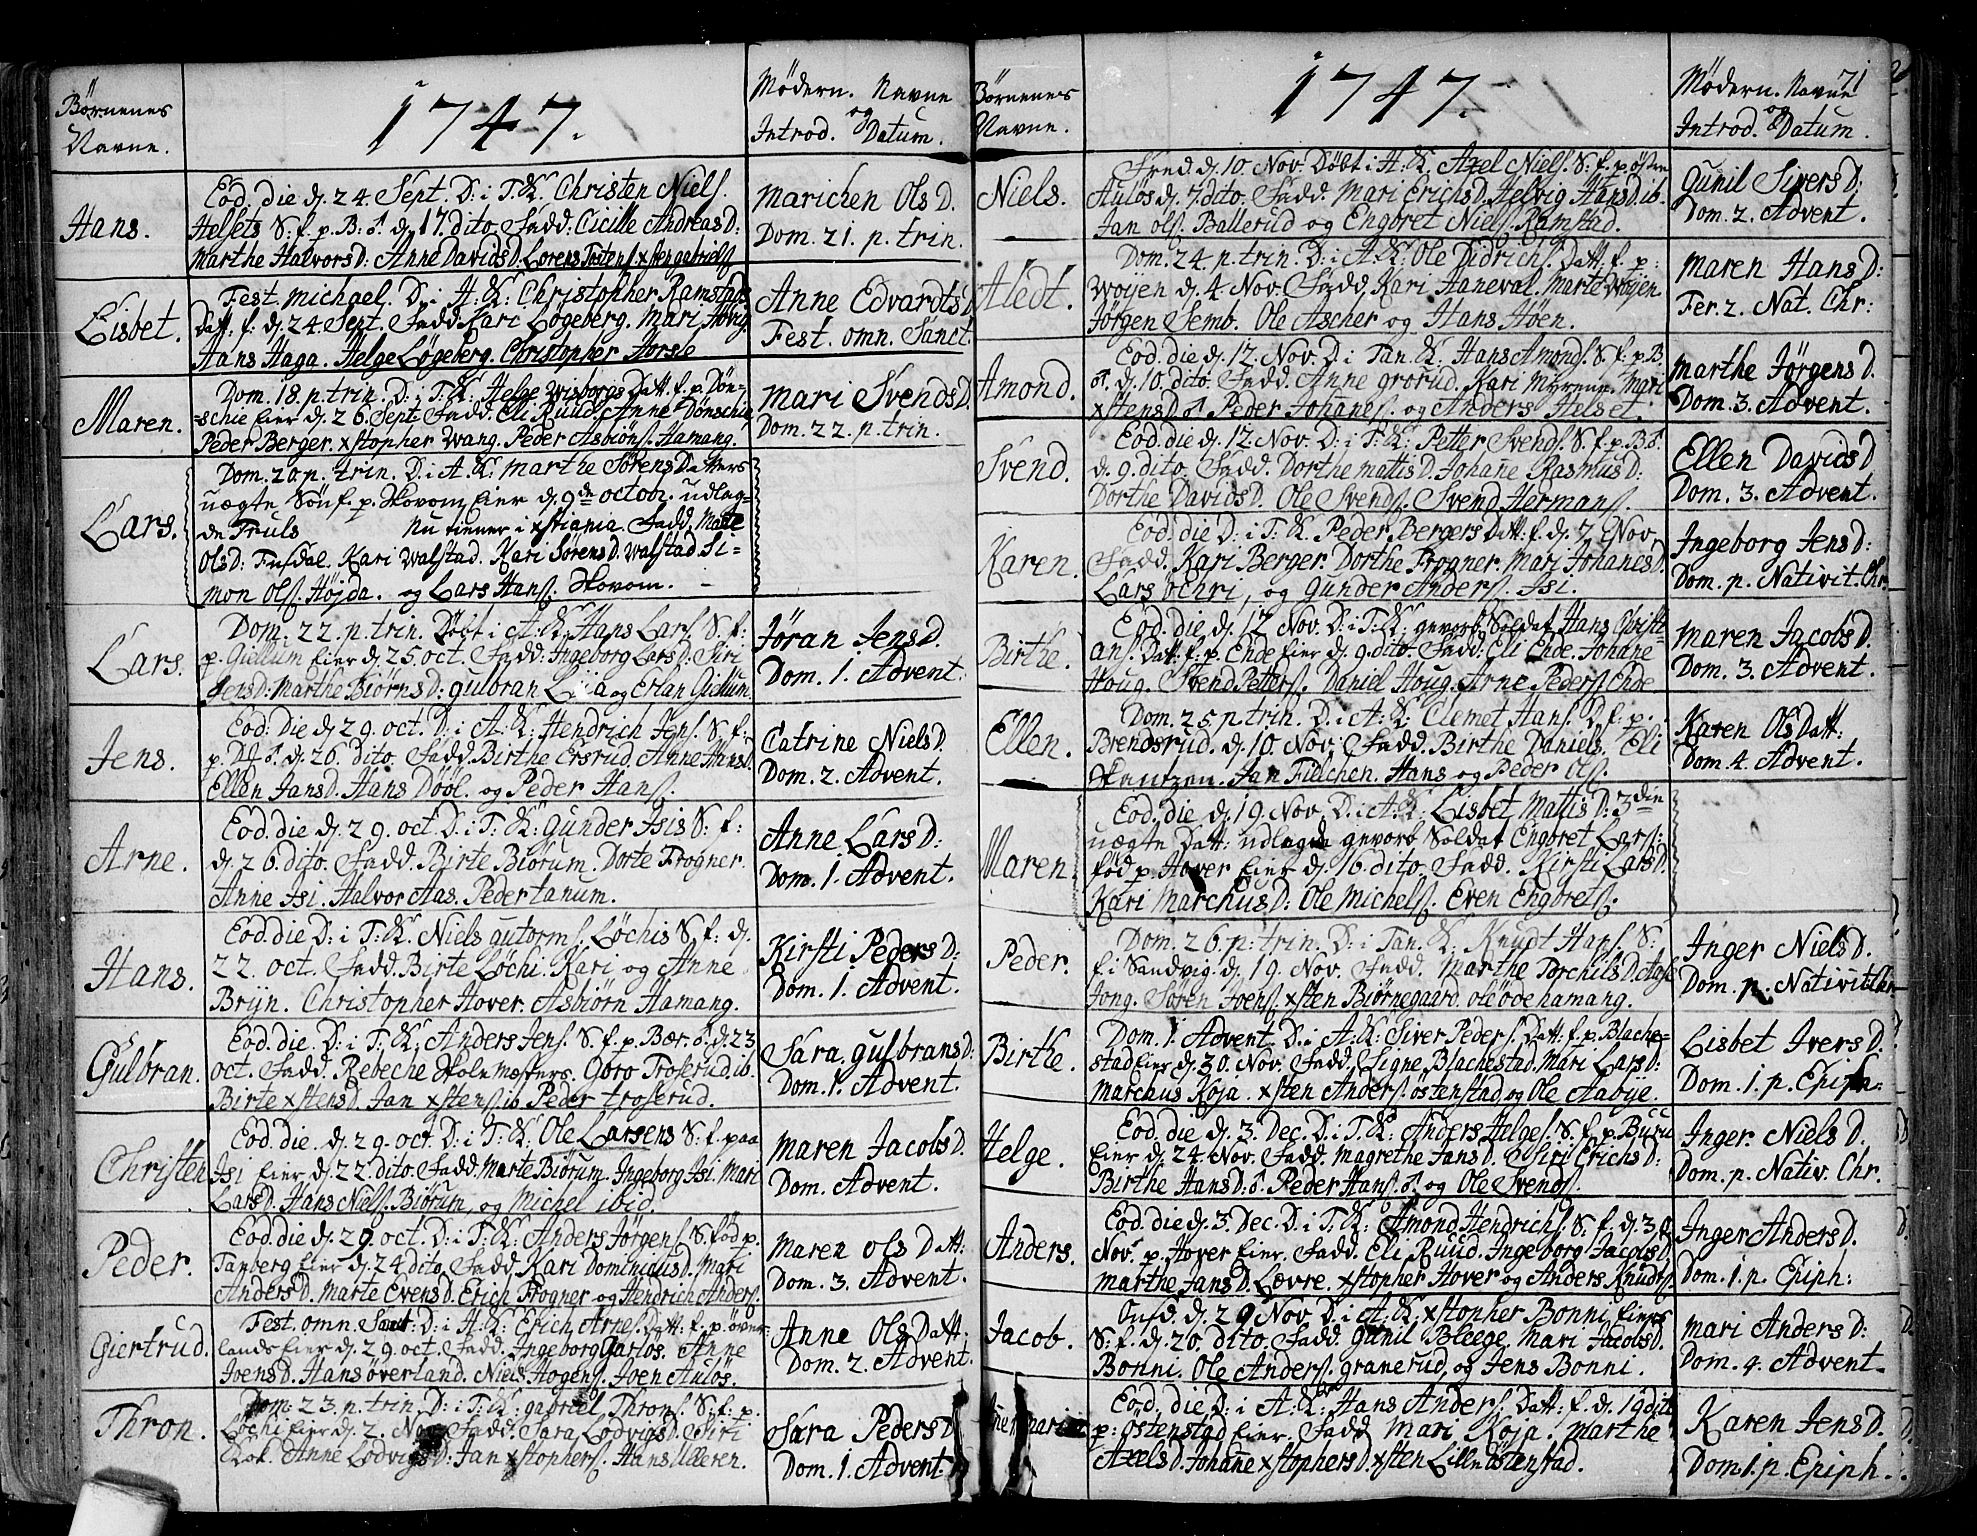 Børnenes
Navne.
1747.
Mødern. Navne
og
Introd. Datum.
Hans.
Eod. die d. 24 Sept. D: i T:K: Christen Niels.
Helsets S. f. p. B: ô. d. 17. dito. Fadd: Cicille Andreas D:
Marthe Halvors D: Anne Davids D: Lorens Xsten gabriels
Marichen Ols D.
Dom. 21. p. trin.
Lisbet.
Fest. Michael. D. i A: K: Christopher Ramstads
Datt. f. d. 24 Sept. Fadd. Kari Løgeberg. Mari
Hans Haga. Helge Løgeberg. Christopher Horsle
Anne Edvardts D
Fest. omn. Sanct.
Maren.
Dom. 18. p. trin. D. i T:K: Helge Wisborgs Datt. f. p. Døn-
-schie Eier d. 26 Sept. Fadd. Eli Ruud. Anne Dønschie
Peder Berger. Xstopher Wang. Peder Asbiøns. Hamang.
Mari Svends D.
Dom. 22. p. trin.
Lars.
Dom. 20. p. trin. D. i A: K: Marthe Sørens Datters
uægte Søn f. p. Skovom Eier d. 9de octob. udlag=
de Truls nu tiener i Xstiania. Fadd. Marte
Ols D: Fusdal. Kari Walstad. Kari Sørens D. Walstad Si=
mon Ols. Højda. og Lars Hans. Skovom. -
Lars.
Dom. 22. p. trin. Døbt i A: K: Hans Lars. S. f:
p. Giellum Eier d. 25. oct. Fadd: Ingeborg Lars D: Siri
Jens D: Marthe Biørns D: gulbran Lia og Erlan Giellum
Jøran Jens D.
Dom. 1. Advent.
Jens.
Eod: Die d. 29. oct. D: i A: K: Hendrich Jens. S. f:
p. ô. d. 26. dito. Fadd. Birthe Ersrud. Anne Hans D.
Ellen Jans D. Hans Dööl. og Peder Hans.
Catrine Niels D.
Dom. 2. Advent.
Arne.
Eod. die d. 29. oct. D: i T: K: Gunder Isis S: f:
d. 26. dito. Fadd. Birte Biørum. Dorte Frogner.
Anne Isi. Halvor Aas. Peder tanum.
Anne Lars D:
Dom. 1. Advent.
Hans.
Eod. die D: i T: K: Niels gutorms. Løchis S: f: d.
22. oct. Fadd. Birte Løchi. Kari og Anne
Brijn. Christopher Hover. Asbiørn Hamang.
Kirsti Peders D:
Dom. 1. Advent.
Gulbran.
Eod. die. D: i T: K: Anders Jens. S. f. p. Bær. ô. d. 23
oct. Fadd. Rebeche Skolemesters. Goro Troserud ib.
Birte Xstens D. Jan Xstens ib. Peder troserud.
Sara. gulbrans D:
Dom. 1. Advent.
Christen
Eod. die. d. 29. oct. D: i T: K: Ole Larsens S: f. paa
Isi Eier d. 22. dito. Fadd. Marte Biørum. Ingeborg Isi. Mari
Lars D. Hans Niels. Biørum, og Michel ibid.
Maren Jacobs D.
Dom. Advent.
Peder.
Eod. die d. 29. oct. D: i T: K: Anders Jørgens. S. fød p.
Tanberg Eier d. 24 dito. Fadd. Kari Dominicus D. Mari
Anders D. Marte Evens D. Erich Frogner og Hendrich Anders.
Maren Ols Datt:
Dom. 3. Advent.
Giertrud.
Fest. omn. Sanct. D: i A: K: Erich Arnes. Datt: f. p. över=
lands Eier d. 29. oct. Fadd. Ingeborg Garlos. Anne
Joens D. Hans överland. Niels Hogens. Joen Aulös.
Anne Ols Datt:
Dom. 2. Advent.
Thron.
Dom. 23. p. trin. D: i T: K: gabriel Throns. S. f: p.
Løchi Eier d. 2. Nov. Fadd. Sara Lodvigs D. Siri
Anne Lodvigs D: Jan Xstophers. Hans Ulleren.
Sara Peders D.
Dom. 1. Advent.
Børnenes
Navne.
1747.
71
Mødern. Navne
og
Introd. Datum.
Niels.
Fred. d. 10. Nov. Døbt i A: K. Axel Niels. S. f. p östre
Aulös d. 7. dito. Fadd. Mari Erichs D. Helvig Hans D. ib.
Jan ols. Ballerud og Engbret Niels. Ramstad.
Gunil Sivers D:
Dom. 2. Advent.
Aledt.
Dom. 24. p. trin. D: i A: K: Ole Didrichs. Datt. f. p:
Wøijen d. 4. Nov. Fadd. Kari Haneval. Marte Wøijen
Jörgen Semb. Ole Ascher og Hans Høen.
Maren Hans D:
Fer. 2. Nat. Chr:
Amond.
Eod. die d. 12. Nov. D: i Tan. K: Hans Amonds. S. f. p. B
ô. d. 10. dito. Fadd. Anne grorud. Kari Myrene. Mari
Xstens D. ô. Peder Johanes. og Anders Helset.
Marthe Jørgens D.
Dom. 3. Advent.
Svend.
Eod. die d. 12. Nov. D: i T: K: Petter Svends. S. f. p. B ô.
d. 9. dito. Fadd. Dorthe Mattis D. Johane Rasmus D:
Dorthe Davids D. Ole Svends. Svend Hermans.
Ellen Davids D
Dom. 3. Advent.
Karen.
Eod. die D: i T: K: Peder Bergers Datt: f. d. 7. Nov.
Fadd. Kari Berger. Dorthe Frogner. Mari Johanes D.
Lars Öchri, og Gunder Anders. Isi.
Ingeborg Jens D:
Dom. p. Nativit. Chr.
Birthe.
Eod. die d. 12 Nov. D: i T: K: gevorb. Soldat Hans Christi-
ans. Datt. f: p. Ende Eier d. 9. dito. Fadd: Eli Ende. Johane
Houg. Svend Petters. Daniel Houg. Arne Peders Ende
Maren Jacobs D.
Dom. 3. Advent.
Ellen.
Dom. 25. p. trin. D. i A: K: Clemet Hans. D. f: p.
Brendsrud. d. 10. Nov. Fadd. Birthe Daniels. Eli
Skantzen. Jan Fielchen. Hans og Peder Ols.
Karen Ols Datt:
Dom. 4. Advent.
Maren.
Eod. die d. 19. Nov. D. i A: K: Lisbet Mattis D: 3die
uægte Datt: udlagde gevorb. Soldat Engbret Lars.
fød p. Hover Eier d. 16. dito. Fadd. Kirsti Lars D.
Kari Marchus D: Ole Michels. Even Engbrets.
Peder.
Dom. 26. p: trin. D: i Tan. K: Knudt Hans. S:
f. i Sandvig. d. 19. Nov. Fadd. Marthe Torchils D. Aase
Jong. Søren Joens. Xsten Biørnegaard. ole öde hamang.
Inger Niels D.
Dom. p. Nativit Chr
Birthe.
Dom. 1. Advent. D. i A: K: Siver Peders. Datt: f. p. Blache-
stad Eier d. 30. Nov. Fadd. Signe Blachestad. Mari Lars D:
Marchus Koja. Xsten Anders. östenstad, og Ole Aabye.
Lisbet Ivers D.
Dom. 1. p. Epiph:
Helge.
Eod. die d. 3. Dec. D: i T: K: Anders Helges. S. f. p. Buru
Eier d. 24. Nov. Fadd. Magrethe Jans D. Siri Erichs D:
Birthe Hans D: ô. Peder Hans. ô. og Ole Svends.
Inger. Niels D.
Dom. p. Nativ. Chr.
Anders.
Eod. die d. 3. Dec. D. i T: K: Amond Hendrichs. S. f. d. 30
Nov. p. Hover Eier. Fadd. Eli Ruud. Ingeborg Jacobs D.
Marthe Jans D. Løvre. Xstopher Hover og Anders Knudts.
Inger Anders D.
Dom. 1. p. Epiph:
Jacob.
Onsd. d. 29 Nov. D: i A: K: Xstopher Bonni Eiers
S. f. d. 20. dito. Fadd. Gunil Bleege. Mari Jacobs D.
Bonni. Ole Anders. granerud, og Jens Bonni.
Mari Anders D:
Dom. 4. Advent
maria
Eod. die. D: i A: K: Hans Anders. Datt: f. d. 19 dito
p: östenstad Eier. Fadd. Mari Koja. Marthe
Axels D. Johane Xstophers D. Xsten Lille östenstad.
Karen Jens D.
Dom 1. p. Epiph.